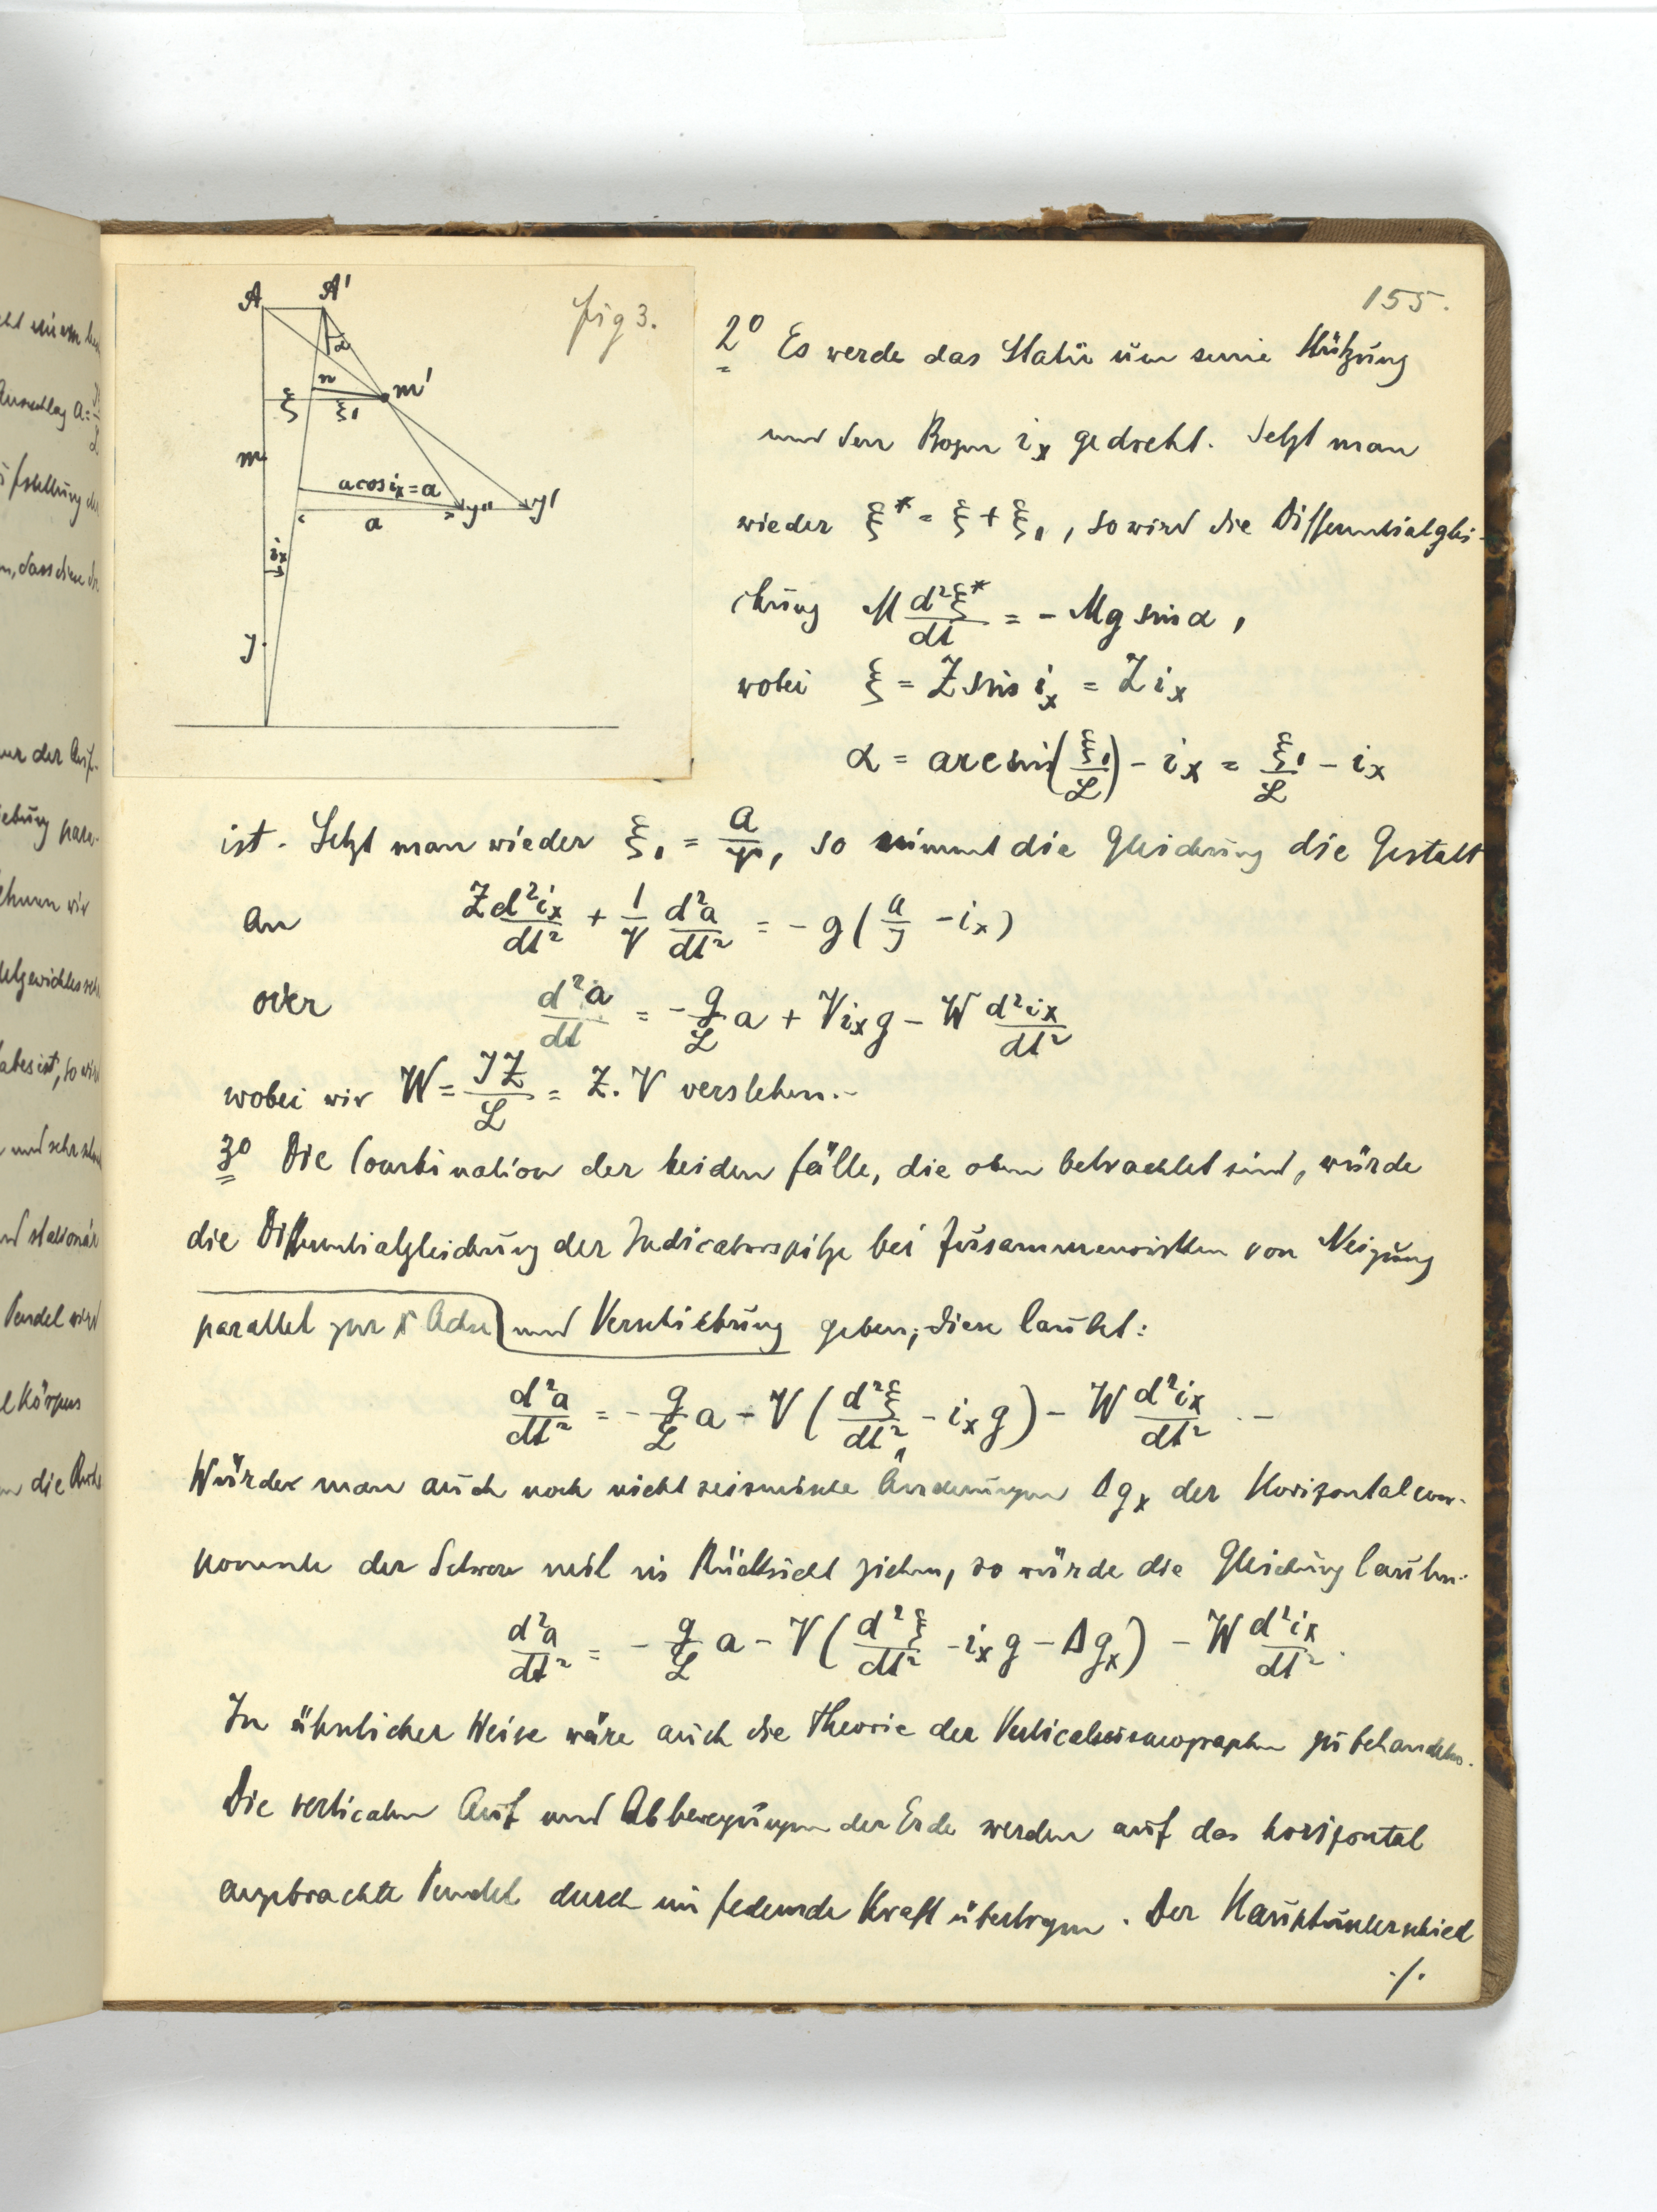 155.
fig 3.
A A'
α
n m'
ξ ξ₁
m
a cos iₓ = a
a J'' J'
iₓ
J
2⁰ Es werde das Stativ um seine Stützung
um den Bogen iₓ gedreht. Setzt man
wieder ξ* = ξ + ξ₁, so wird die Differentialglei-
chung M d²ξ*/dt = - Mg sin α,
wobei ξ = Z sin iₓ = Z iₓ
α = arc sin(ξ₁/L) - iₓ = ξ₁/L - iₓ
ist. Setzt man wieder ξ₁ = a/V, so nimmt die Gleichung die Gestalt
an Z d²iₓ/dt² + 1/V d²a/dt² = - g (a/J - iₓ)
oder d²a/dt = - g/L a + V iₓ g - W d²iₓ/dt²
wobei wir W = JZ/L = Z. V verstehen.-
3⁰ Die Combination der beiden Fälle, die oben betrachtet sind, würde
die Differentialgleichung der Indicatorspitze bei Zusammenwirken von Neigung
parallel zur x Achse und Verschiebung geben; diese lautet:
d²a/dt² = - g/L a - V (d²ξ/dt² - iₓ g) - W d²iₓ/dt² . -
Würde man auch noch nicht seismische Änderungen Δgₓ der Horizontalcom-
ponente der Schwere mit in Rücksicht ziehen, so würde die Gleichung lauten:
d²a/dt² = - g/L a - V (d²ξ/dt² - iₓ g - Δgₓ) - W d²iₓ/dt².
In ähnlicher Weise wäre auch die Theorie der Verticalseismographen zu behandeln.
Die verticalen Auf und Abbewegungen der Erde werden auf das horizontal
angebrachte Pendel durch eine federnde Kraft übertragen. Der Hauptunterschied
./.